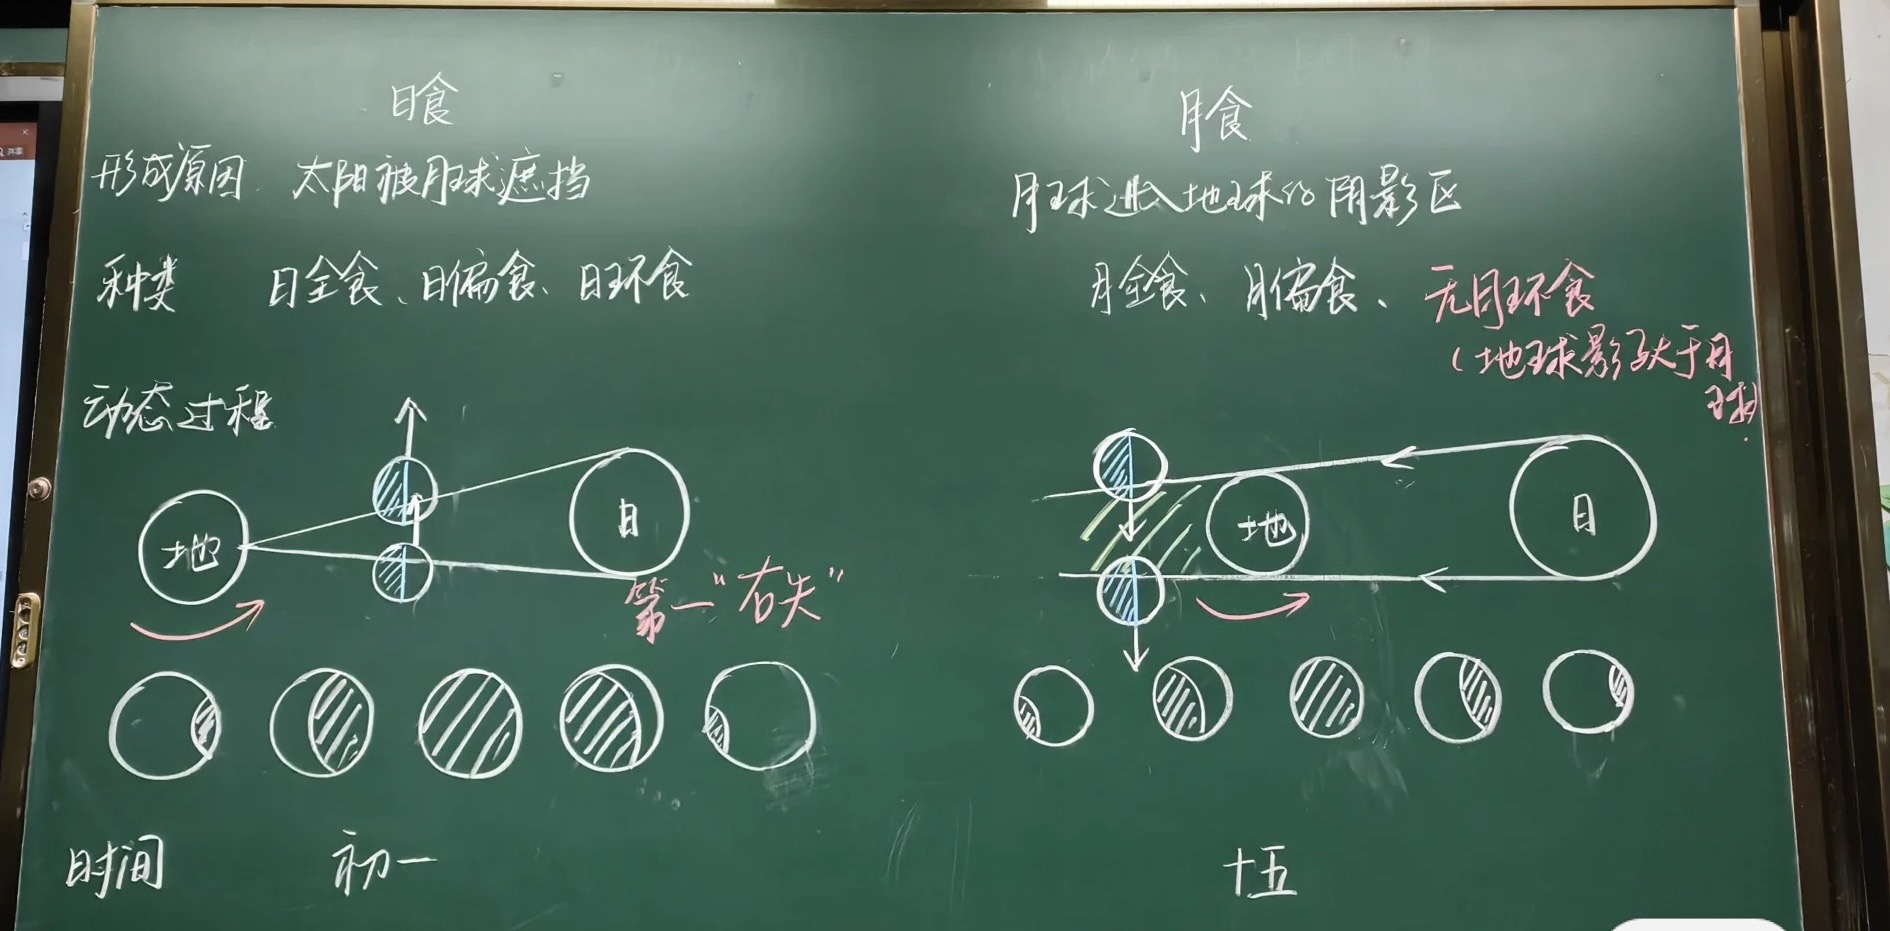 日食
月食
形成原因 太阳被月球遮挡
月球进入地球的阴影区
种类 日全食、日偏食、日环食
月全食、月偏食、无月环食
（地球影子大于月
球）
动态过程
地
日
地
日
第一“右失”
时间 初一
十五
共享